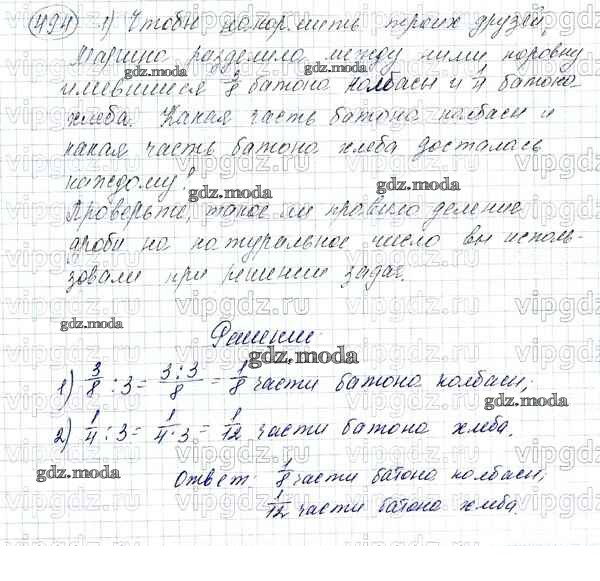 494 1) Чтобы накормить троих друзей,
Марина разделила между ними поровну
имевшиеся 3/8 батона колбасы и 1/4 батона
хлеба. Какая часть батона колбасы и
какая часть батона хлеба досталась
каждому?
Проверьте, такое ли правило деления
дроби на натуральное число вы исполь-
зовали при решении задач.
Решение:
1) 3/8 : 3 = 3:3/8 = 1/8 части батона колбасы;
2) 1/4 : 3 = 1/4·3 = 1/12 части батона хлеба.
Ответ: 1/8 части батона колбасы,
1/12 части батона хлеба.
gdz.moda
vipgdz.ru